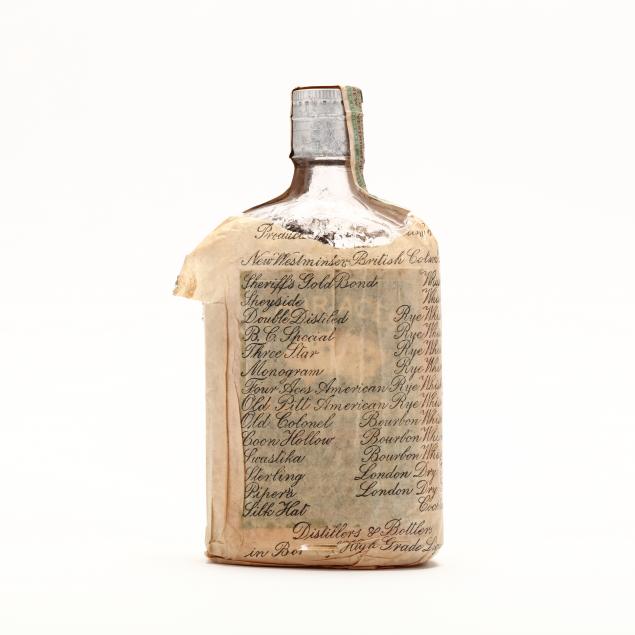 Produc
New Westminser British Colum
Sheriff's Gold Bond Whis
Speyside Whis
Double Distiled Rye Whis
B.C. Special Rye Whis
Three Star Rye Whis
Monogram Rye Whis
Four Aces American Rye Whis
Old Pitt American Rye Whis
Old Colonel Bourbon Whis
Coon Hollow Bourbon Whis
Swastika Bourbon Whis
Sterling London Dry
Piper's London Dry
Silk Hat Coc
Distillers & Bottler
in Bo High Grade